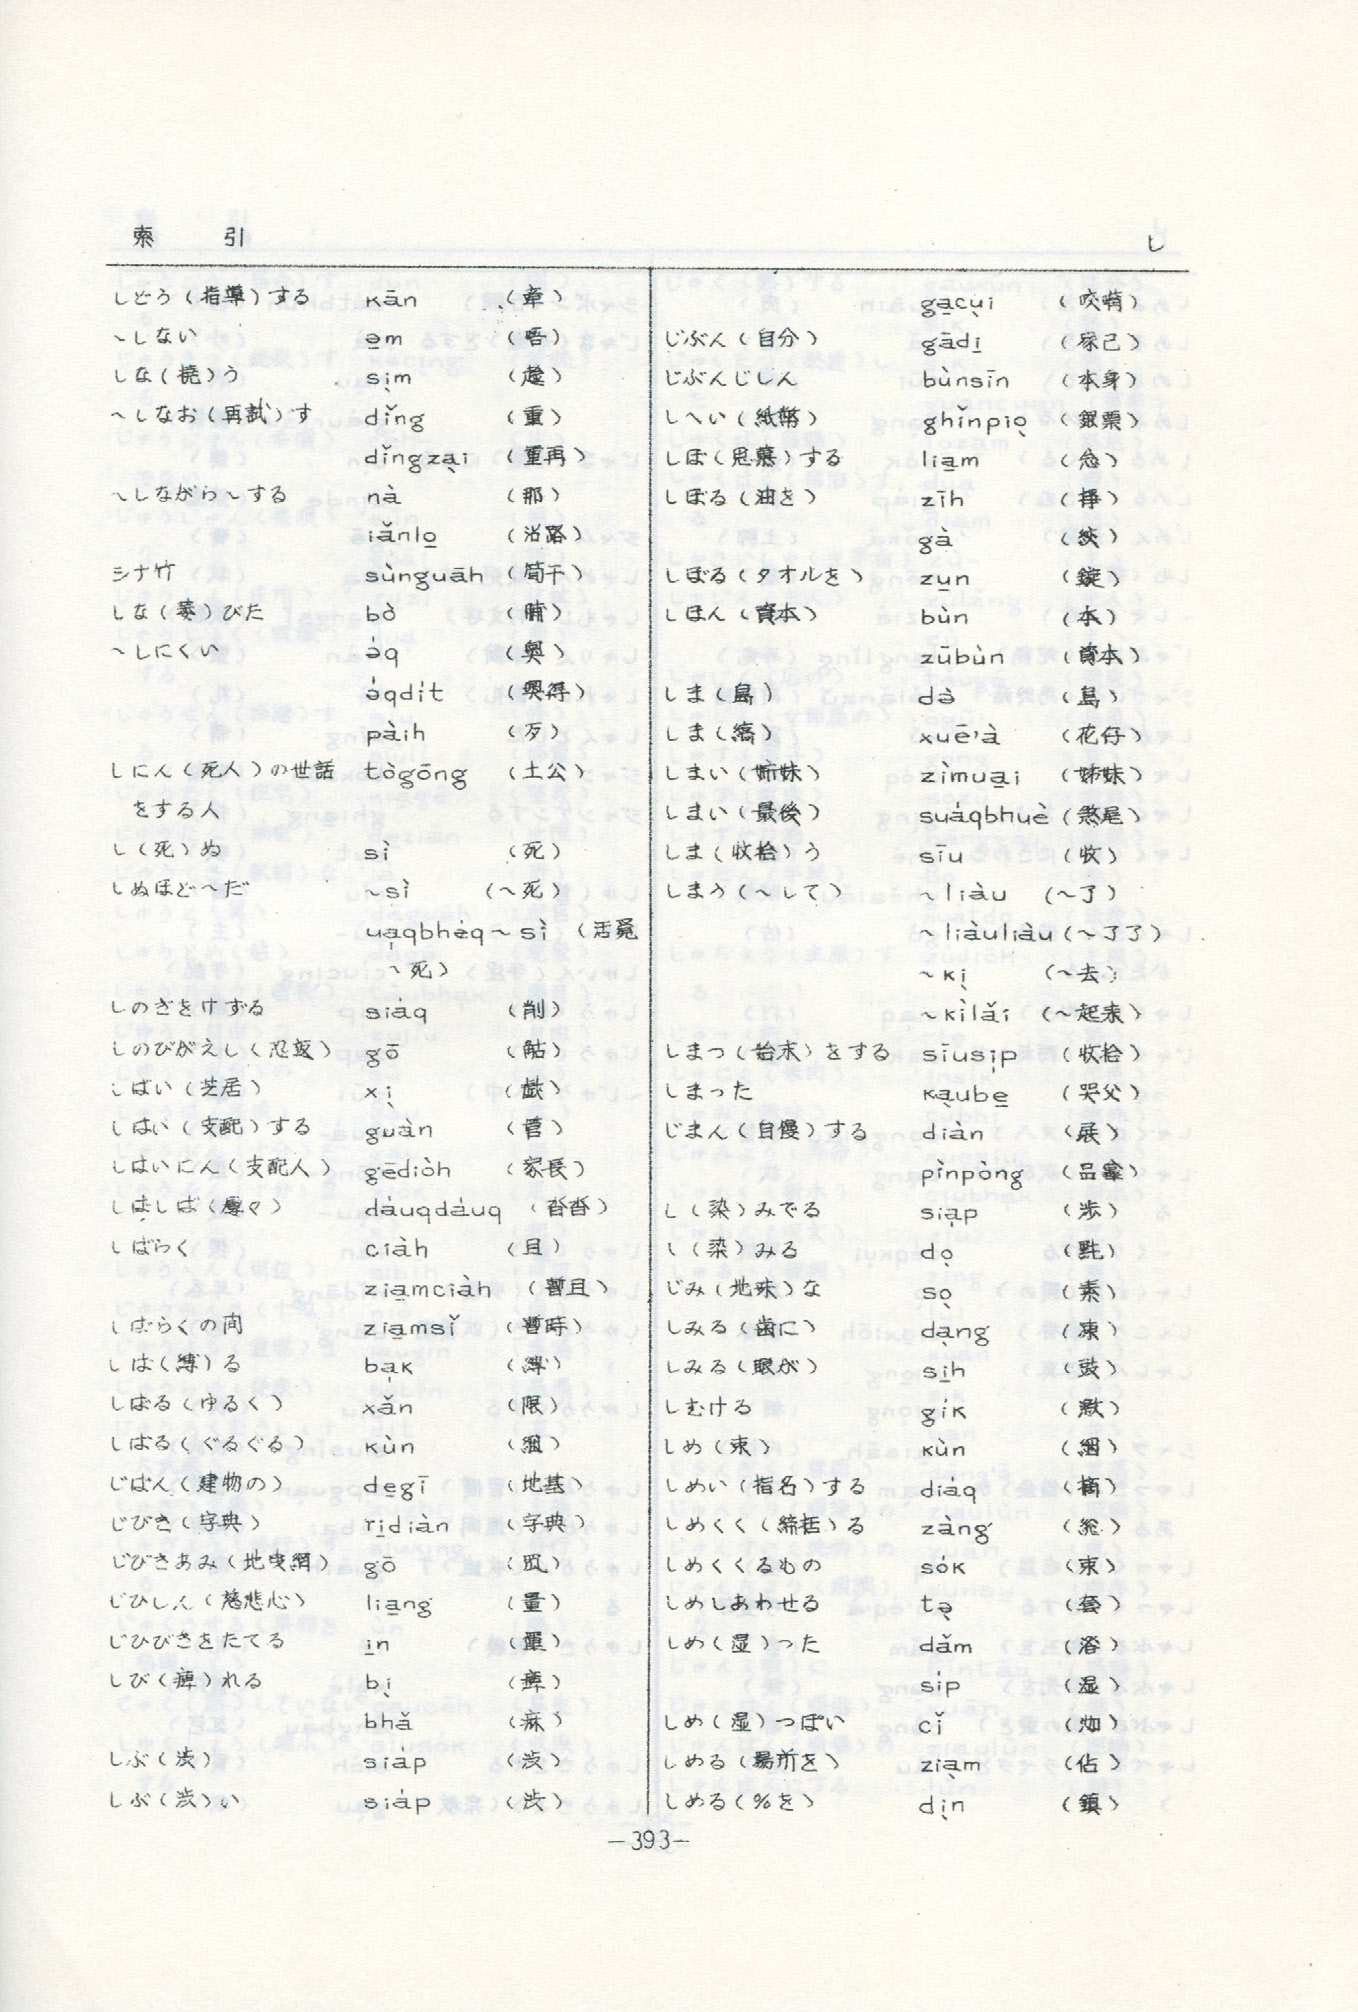 索 引 し
しどう(指導)する kān (牽)
〜しない ə̱m (唔)
しな(撓)う sịm
〜しなお(再試)す dǐng (重)
dǐngzại (重再)
〜しながら〜する nà (那)
iǎnlo̱ (沿路)
シナ竹 sùnguāh (筍干)
しな(萎)びた bò
〜しにくい ə̍q
ə̍qdi̍t
pàih (歹)
しにん(死人)の世話 tògōng (土公)
をする人
し(死)ぬ sì (死)
しぬほど〜だ 〜sì (〜死)
uạqbhe̍q〜sì (活
〜死)
しのぎをけずる siáq (削)
しのびがえし(忍返) gō
しばい(芝居) xị (戯)
しはい(支配)する guàn (菅)
しはいにん(支配人) gēdiòh (家長)
しばしば(屡々) da̍uqda̍uq (沓沓)
しばらく ciàh (且)
zia̱mciàh (暫且)
しばらくの間 zia̱msǐ (暫時)
しば(縛)る bạk (縛)
しばる(ゆるく) xǎn (限)
しばる(ぐるぐる) kùn
じばん(建物の) degī (地基)
じびき(字典) ri̱diàn (字典)
じびきあみ(地曳網) gō
じひしん(慈悲心) lia̱ng (量)
じひびきをたてる i̱n
しび(痺)れる bị (痺)
bhǎ (麻)
しぶ(渋) siáp (渋)
しぶ(渋)い siáp (渋)
ga̱cụi
じぶん(自分) gādi̱ (家己)
じぶんじしん bùnsīn (本身)
しへい(紙幣) ghǐnpiọ (銀票)
しぼ(思慕)する lia̱m (念)
しぼる(油を) zīh
gà (絞)
しぼる(タオルを) zụn
しほん(資本) bùn (本)
zūbùn (資本)
しま(島) də̀ (島)
しま(縞) xuē'à (花仔)
しまい(姉妹) zìmuạ̱i (姊妹)
しまい(最後) suáqbhuè (煞尾)
しま(収拾)う sīu (收)
しまう(〜して) 〜liàu (〜了)
〜liàuliàu (〜了了)
〜kị (〜去)
〜kìlǎi (〜起来)
しまつ(始末)をする sīusịp (收拾)
しまった kạube̱ (哭父)
じまん(自慢)する diàn (展)
pìnpòng
し(染)みでる siạp (渉)
し(染)みる dọ
じみ(地味)な sọ (素)
しみる(歯に) dạng (凍)
しみる(眼が) si̱h (豉)
しむける gík (激)
しめ(束) kùn
しめい(指名)する diáq (摘)
しめくく(締括)る zàng (総)
しめくくるもの sók (束)
しめしあわせる tə̣ (套)
しめ(湿)った dǎm
síp (湿)
しめ(湿)っぽい cǐ
しめる(場所を) ziạm (佔)
しめる(%を) dịn (鎮)
—393—